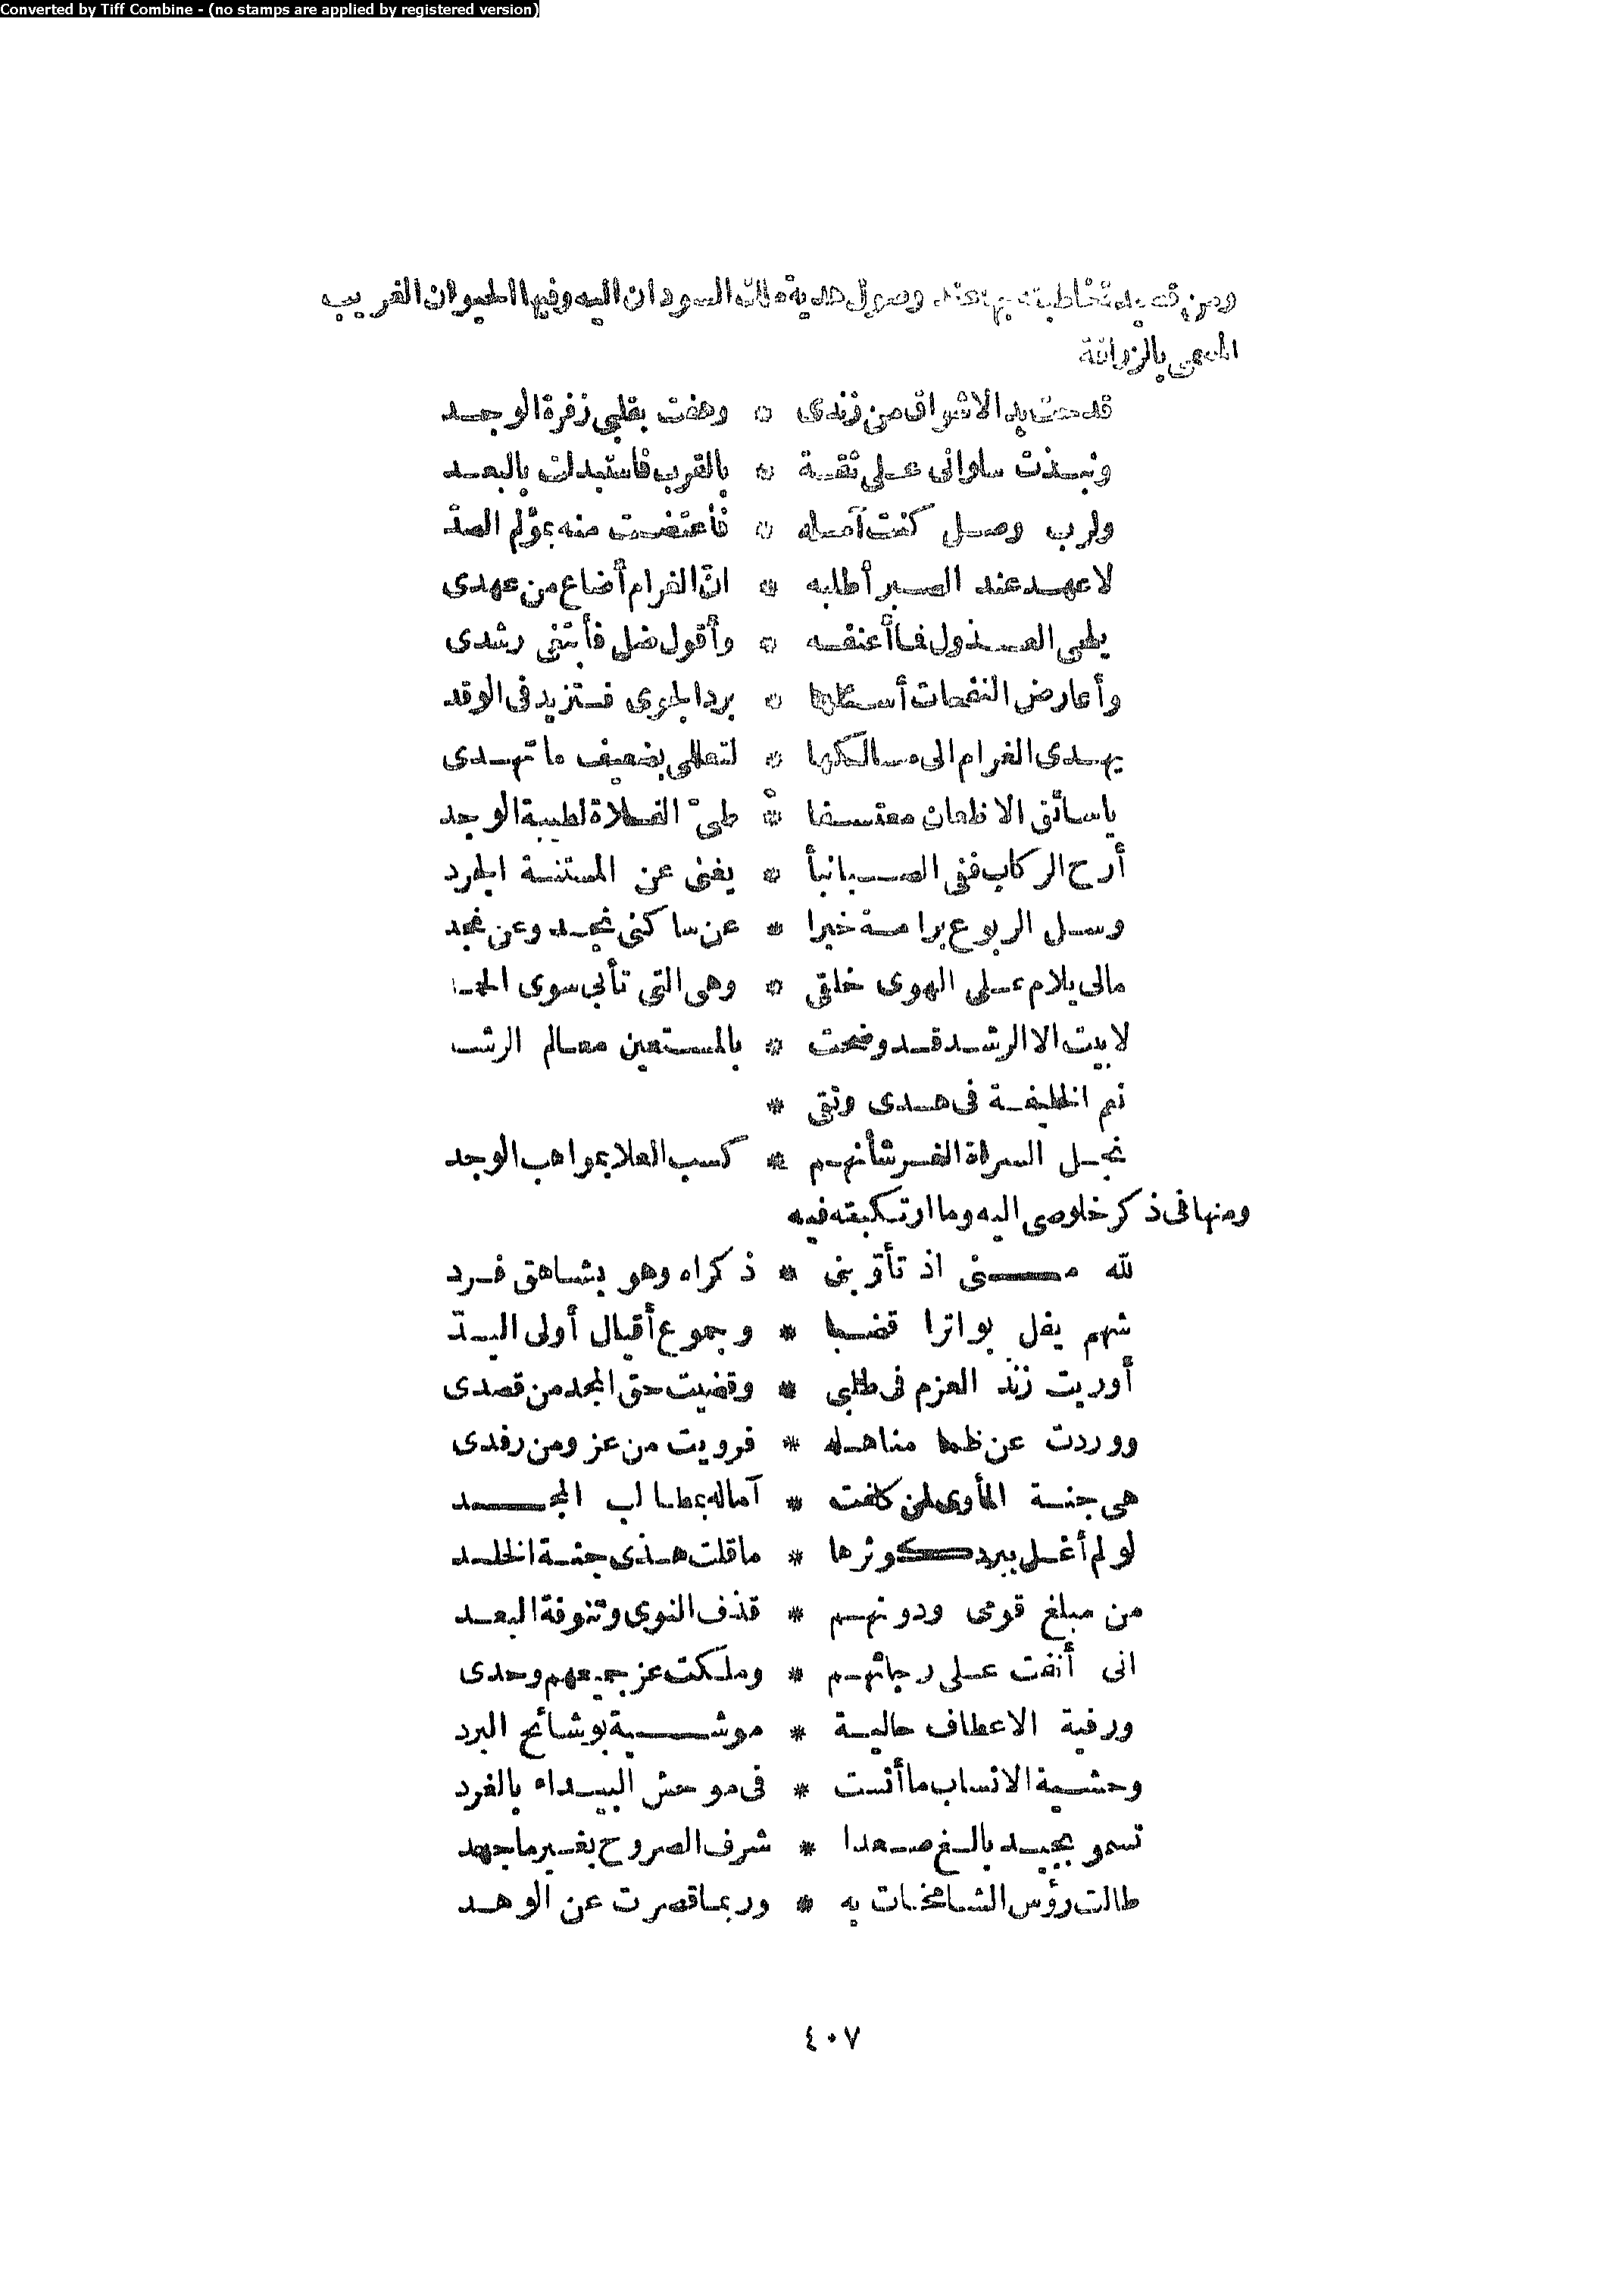 Converted by Tiff Combine - (no stamps are applied by registered version)
ومن قصيدة خاطبته بها عند وصول هدية ملك السودان اليه وفيها الحيوان الغريب
المسمى بالزرافة
قدحت يد الاشواق من زندى * وهفت بقلبى زفرة الوجد
ونبذت سلوانى على ثقة * بالقرب فاستبدلت بالبعد
ولرب وصل كنت آمله * فأعتضت منه بمؤلم الصدّ
لا عهد عند الصبر أطلبه * انّ الغرام أضاع من عهدى
يلحى العذول فما أعنفه * وأقول ضل فأبتغى رشدى
وأعارض النفحات أسألها * برد الجوى فتزيد فى الوقد
يهدى الغرام الى مسالكها * لتعللى بضعيف ما تهدى
ياسائق الاظعان معتسفا * طىّ الفلاة لطيبة الوجد
أرح الركاب ففى الصبا نبأ * يغنى عن المستنة الجرد
وسل الربوع برامة خبرا * عن ساكنى نجد وعن نجد
مالى يلام على الهوى خلقى * وهى التى تأبى سوى الحمد
لابيت الا الرشد قد وضحت * بالمستعين معالم الرشد
نم الخليفة فى هدى وتقى *
نجل السراة الغر شأنهم * كسب العلا بمواهب الوجد
ومنها فى ذكر خلوصى اليه وما ارتكبته فيه
لله منى اذ تأوّبنى * ذكراه وهو بشاهق فرد
شهم يفل بواترا قضبا * وجموع أقيال أولى اليدّ
أوريت زند العزم فى طلبى * وقضيت حق المجد من قصدى
ووردت عن ظما مناهله * فرويت من عز ومن رفدى
هى جنة المأوى لمن كلفت * آماله بمطالب المجد
لو لم أغل ببرد كوثرها * ماقلت هذى جنة الخلد
من مبلغ قومى ودونهم * قذف النوى وتنوفة البعد
انى أنفت على رجائهم * وملكت عز جميعهم وحدى
ورقية الاعطاف حالية * موشية بوشائح البرد
وحشية الانساب ما أنست * فى موحش البيداء بالغرد
تسمو بجيد بالغ صعدا * شرف الصروح بغير ما جهد
طالت رؤس الشامخات به * وربما قصرت عن الوهد
٤٠٧